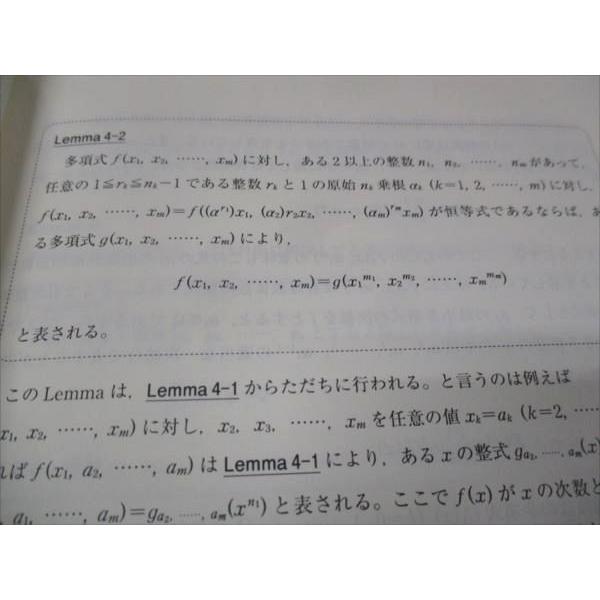 Lemma 4-2
多項式 f(x₁, x₂, ……, xₘ) に対し, ある2以上の整数 n₁, n₂, ……, nₘ があって,
任意の 1≦rₖ≦nₖ−1 である整数 rₖ と1の原始 nₖ 乗根 αₖ (k=1, 2, ……, m) に対し,
f(x₁, x₂, ……, xₘ)=f((α^{r₁})x₁, (α₂)r₂x₂, ……, (αₘ)^{rₘ}xₘ) が恒等式であるならば, あ
る多項式 g(x₁, x₂, ……, xₘ) により,
f(x₁, x₂, ……, xₘ)=g(x₁^{m₁}, x₂^{m₂}, ……, xₘ^{mₘ})
と表される。
この Lemma は, Lemma 4-1 からただちに行われる。と言うのは例えば
x₁, x₂, ……, xₘ) に対し, x₂, x₃, ……, xₘ を任意の値 xₖ=aₖ (k=2, ……
れば f(x₁, a₂, ……, aₘ) は Lemma 4-1 により, ある x の整式 g_{a₂, ……, aₘ}(x)
a₁, ……, aₘ)=g_{a₂, ……, aₘ}(x^{n₁}) と表される。ここで f(x) が x の次数と